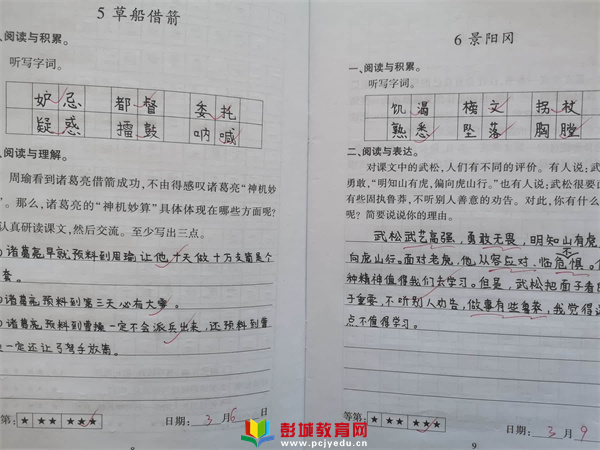 5 草船借箭
、阅读与积累。
听写字词。
妒忌 都督 委托
疑惑 擂鼓 呐喊
、阅读与理解。
周瑜看到诸葛亮借箭成功，不由得感叹诸葛亮“神机妙
。那么，诸葛亮的“神机妙算”具体体现在哪些方面呢？
认真研读课文，然后交流。至少写出三点。
诸葛亮早就预料到周瑜让他十天做十万支箭是个
套。
诸葛亮预料到第三天必有大雾。
诸葛亮预料到曹操一定不会派兵出来，还预料到曹
一定还让弓弩手放箭。
等第：★ ★★ ★★★ 日期：3月6日
8
6 景阳冈
一、阅读与积累。
听写字词。
饥渴 横文 拐杖
熟悉 坠落 胸膛
二、阅读与表达。
对课文中的武松，人们有不同的评价。有人说：武
勇敢，“明知山有虎，偏向虎山行。”也有人说：武松很要面
有些固执鲁莽，不听别人善意的劝告。对此，你有什么
呢？简要说说你的理由。
武松武艺高强，勇敢无畏，明知山有虎
向虎山行。面对老虎，他从容应对，临危惧。
种精神值得我们去学习。但是，武松把面子看
子重要，不听别人劝告，做事有些鲁莽，我觉得
点不值得学习。
等第：★ ★★ ★★★ 日期：3月9
9
彭城教育网
www.pcjyedu.cn